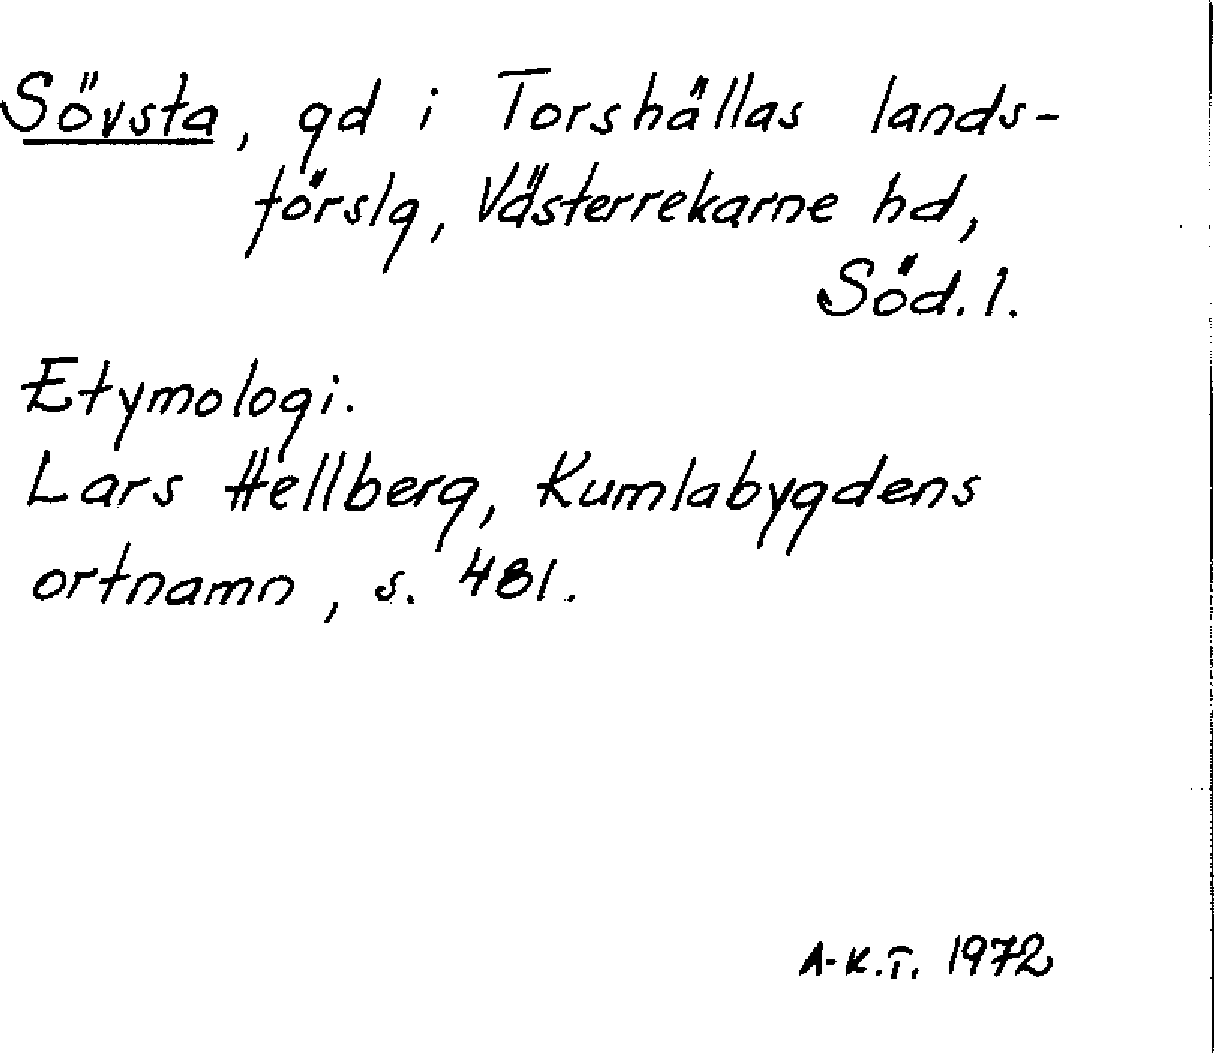 Sövsta, gd i Torshällas lands-
förslg, Västerrekarne hd,
Söd. l.
Etymologi.
Lars Hellberg, Kumlabygdens
ortnamn, s. 481.
A-K.T. 1972